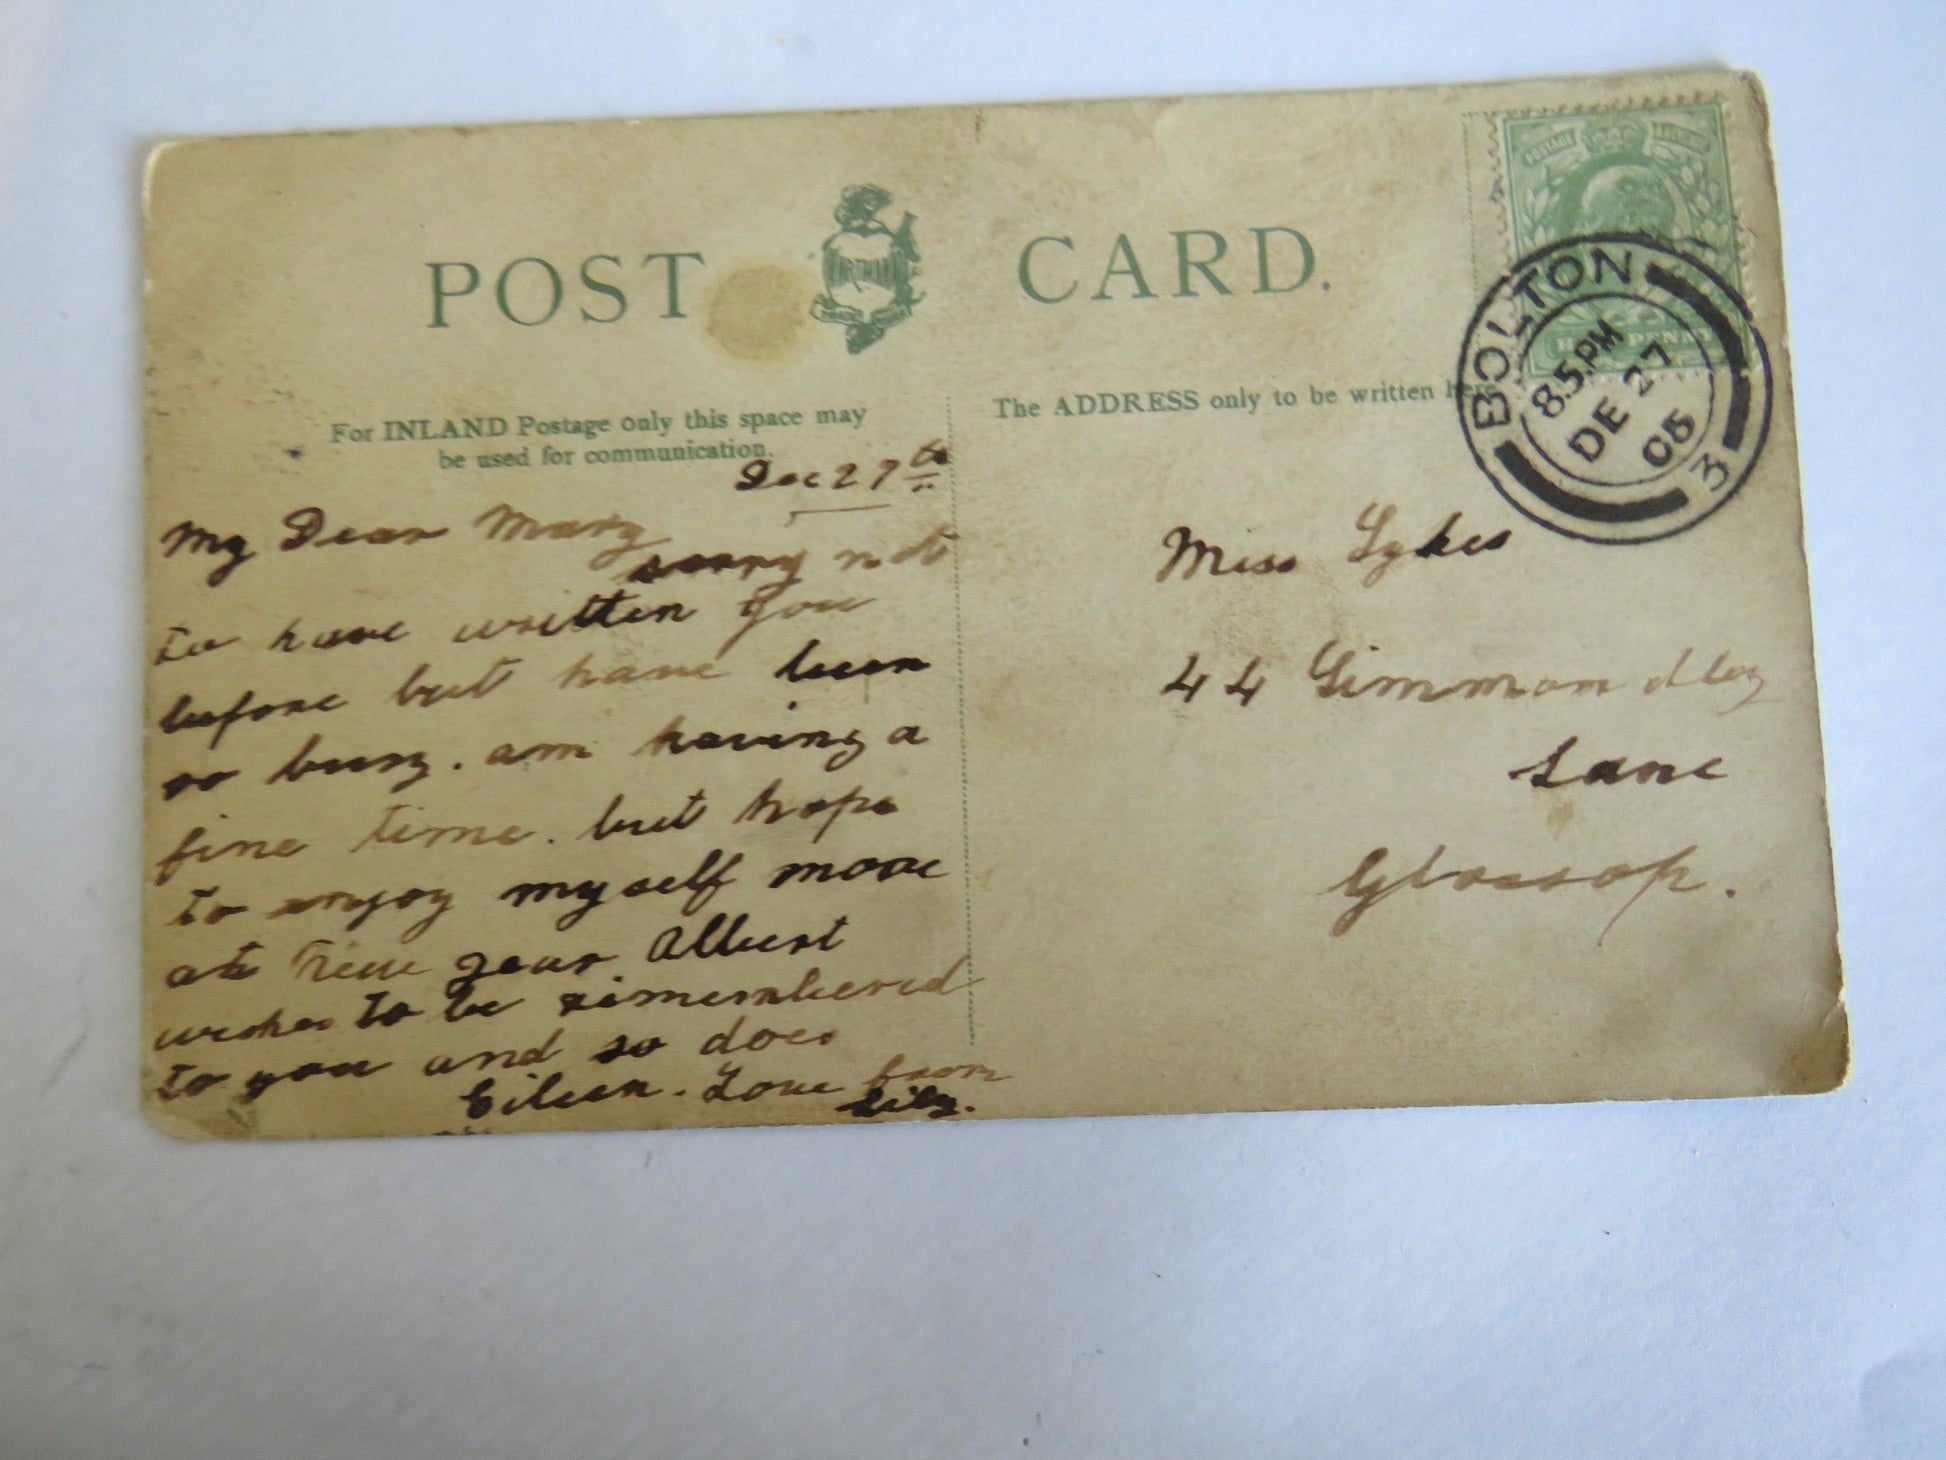 POST CARD.
For INLAND Postage only this space may
be used for communication.
The ADDRESS only to be written here
POSTAGE
HALFPENNY
BOLTON
8.5.PM
DE 27
05
3
Dec 27th
My Dear Mary
sorry not
to have written you
before but have been
so busy. am having a
fine time. but hope
to enjoy myself more
at New year. Albert
wishes to be rimembered
to you and so does
Eileen. Love from
Lily.
Miss Sykes
44
Lane
Glossop.